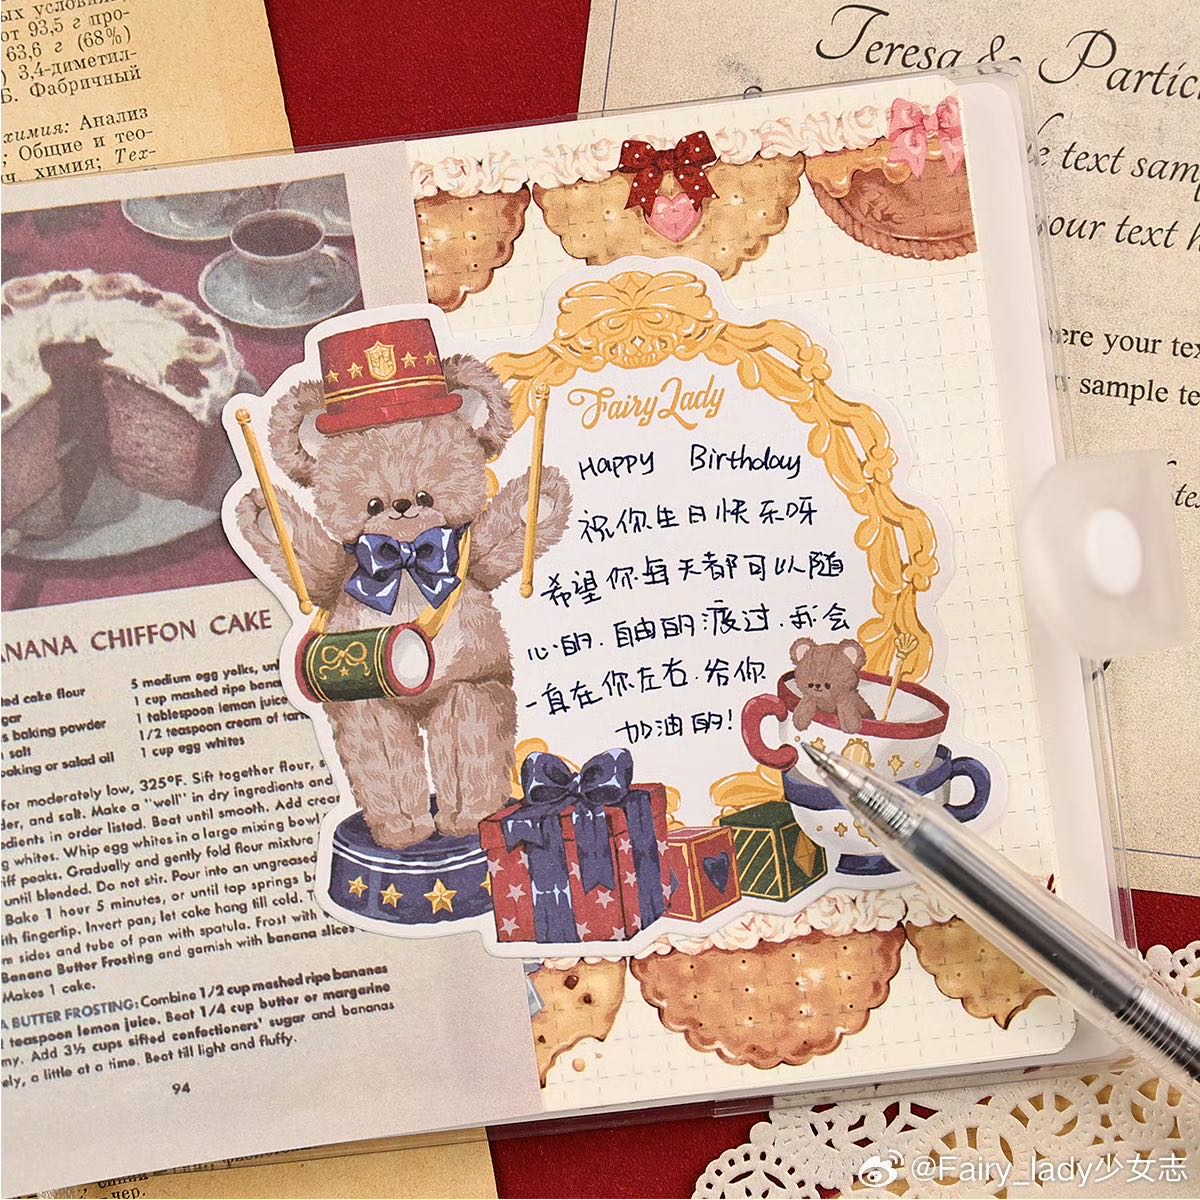 от 93,5 г про-
63,6 г (68%)
3,4-диметил-
Б. Фабричный
химия: Анализ
Общие и тео-
химия; Тех-
Teresa & Partic
text sam
your text h
ere your tex
sample te
Fairy Lady
Happy Birthday
祝你生日快乐呀
希望你每天都可以随
心的.自由的渡过.我会
一直在你左右.给你
加油的!
ANANA CHIFFON CAKE
ted cake flour
gar
s baking powder
salt
oaking or salad oil
5 medium egg yolks, un
1 cup mashed ripe bana
1 tablespoon lemon juice
1/2 teaspoon cream of tart
1 cup egg whites
for moderately low, 325°F. Sift together flour, s
der, and salt. Make a "well" in dry ingredients and
edients in order listed. Beat until smooth. Add crea
g whites. Whip egg whites in a large mixing bowl
iff peaks. Gradually and gently fold flour mixture
until blended. Do not stir. Pour into an ungreased
Bake 1 hour 5 minutes, or until top springs b
th fingertip. Invert pan; let cake hang till cold.
m sides and tube of pan with spatula. Frost with
Banana Butter Frosting and garnish with banana slices
Makes 1 cake.
A BUTTER FROSTING: Combine 1/2 cup mashed ripe bananas
teaspoon lemon juice. Beat 1/4 cup butter or margarine
my. Add 3½ cups sifted confectioners' sugar and bananas
ely, a little at a time. Beat till light and fluffy.
94
@Fairy_lady少女志